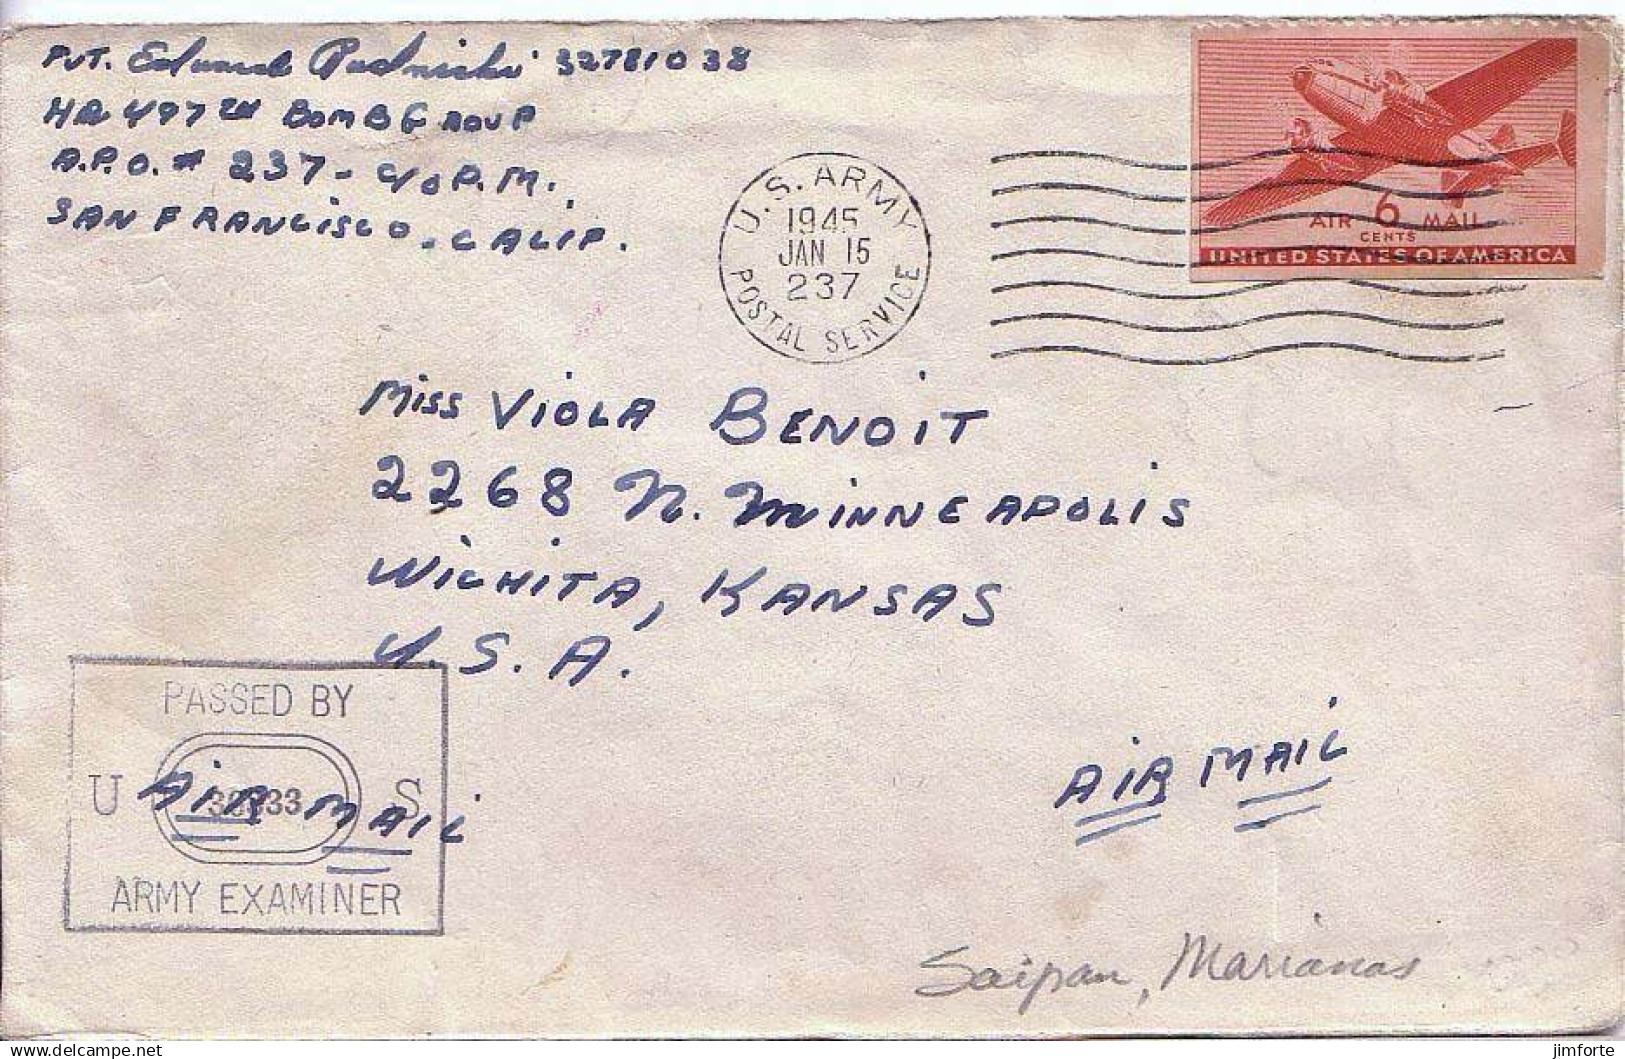 PVT. Edward 32781038
HQ 497TH BOMB GROUP
A.P.O. # 237 - c/o P.M.,
SAN FRANCISCO, CALIF.
U.S. ARMY
1945
JAN 15
237
POSTAL SERVICE
AIR 6 MAIL
CENTS
UNITED STATES OF AMERICA
MISS VIOLA BENOIT
2268 N. MINNEAPOLIS
WICHITA, KANSAS
U.S.A.
PASSED BY
U S
ARMY EXAMINER
AIR MAIL
AIR MAIL
Saipan, Marianas
delcampe.net
jimforte